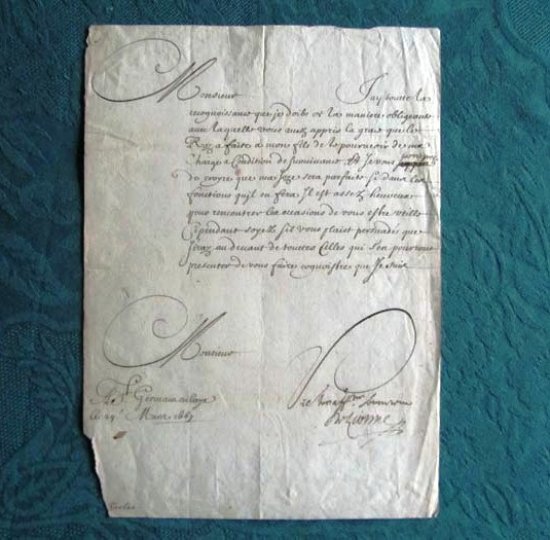 Monsieur J'ay toutte la
recognoissance que je doibs de la maniere obligeante
avec laquelle vous avez appris la grace que le
Roy a faite a mons fils de le pourvoir de ma
Charge a Condition de survivance Et Je vous
de croyre que ma Joye sera parfaite si dans les
fonctions qu'il en fera Il est assez heureux
pour rencontrer les occasions de vous estre utille
Cependant soyez sil vous plaist persuadé que
J'iray au devant de touttes Celles qui s'en pourront
presenter de vous faire cognoistre que Je suis
Monsieur
A St Germain en laye
le 29e Mars 1667
Vre
De Lionne